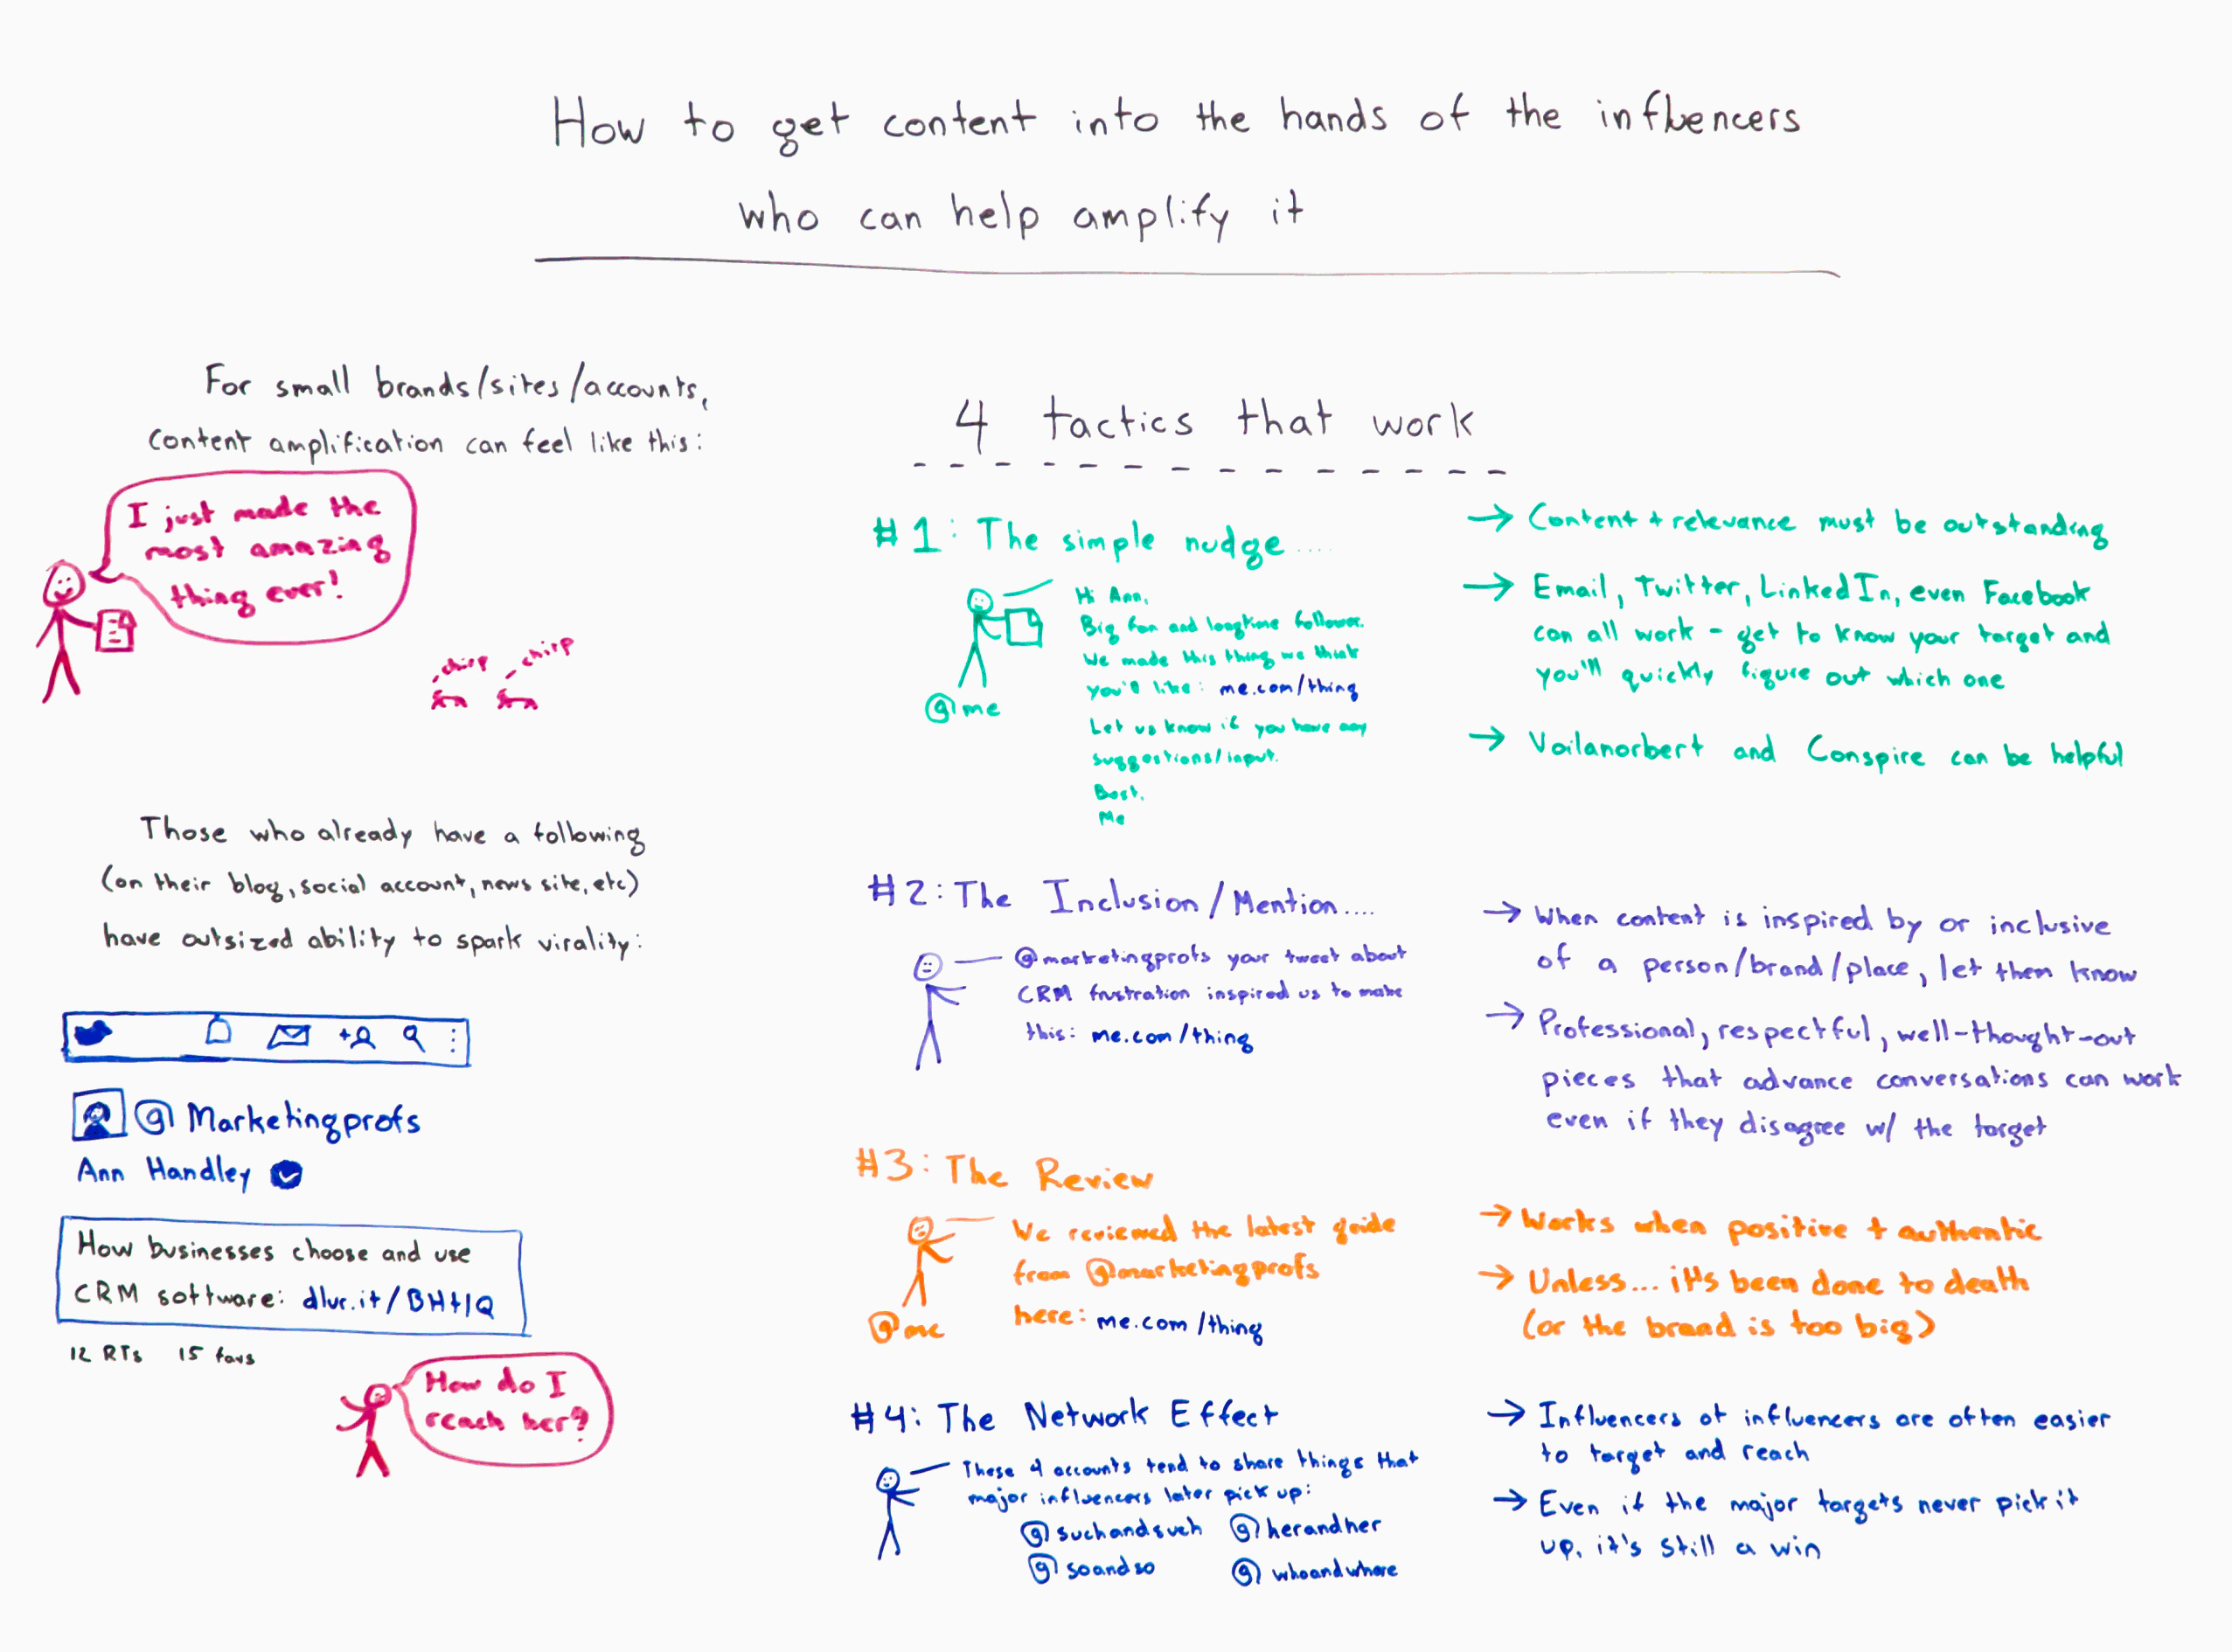 How to get content into the hands of the influencers
who can help amplify it
For small brands/sites/accounts,
content amplification can feel like this:
I just made the
most amazing
thing ever!
chirp
chirp
Those who already have a following
(on their blog, social account, news site, etc)
have outsized ability to spark virality:
@Marketingprofs
Ann Handley
How businesses choose and use
CRM software: dlvr.it/BHtIQ
12 RTs 15 favs
How do I
reach her?
4 tactics that work
#1: The simple nudge....
Hi Ann,
Big fan and longtime follower.
We made this thing we think
you'll like: me.com/thing
Let us know if you have any
suggestions/input.
Best,
Me
@me
→ Content + relevance must be outstanding
→ Email, Twitter, LinkedIn, even Facebook
can all work - get to know your target and
you'll quickly figure out which one
→ Voilanorbert and Conspire can be helpful
#2: The Inclusion/Mention....
@marketingprofs your tweet about
CRM frustration inspired us to make
this: me.com/thing
→ When content is inspired by or inclusive
of a person/brand/place, let them know
→ Professional, respectful, well-thought-out
pieces that advance conversations can work
even if they disagree w/ the target
#3: The Review
We reviewed the latest guide
from @marketingprofs
here: me.com/thing
@me
→ Works when positive + authentic
→ Unless... it's been done to death
(or the brand is too big)
#4: The Network Effect
These 4 accounts tend to share things that
major influencers later pick up:
@suchandsuch @herandher
@soandso @whoandwhere
→ Influencers of influencers are often easier
to target and reach
→ Even if the major targets never pick it
up, it's still a win